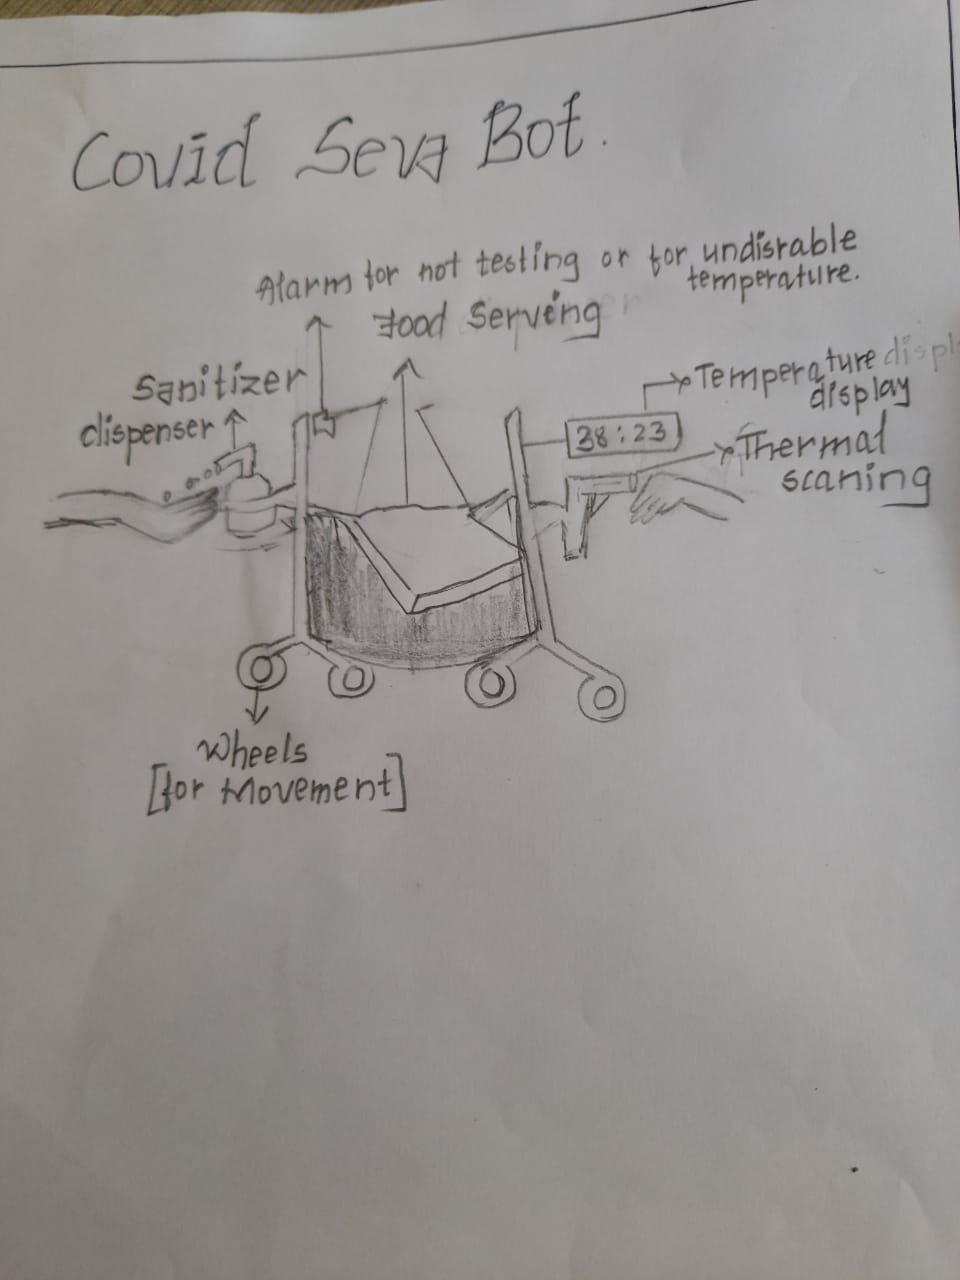 Covid Seva Bot.
Alarm for not testing or for undisrable
temperature.
Food Serving
Sanitizer
dispenser
Temperature displ
display
38:23
Thermal
scaning
Wheels
[for Movement]